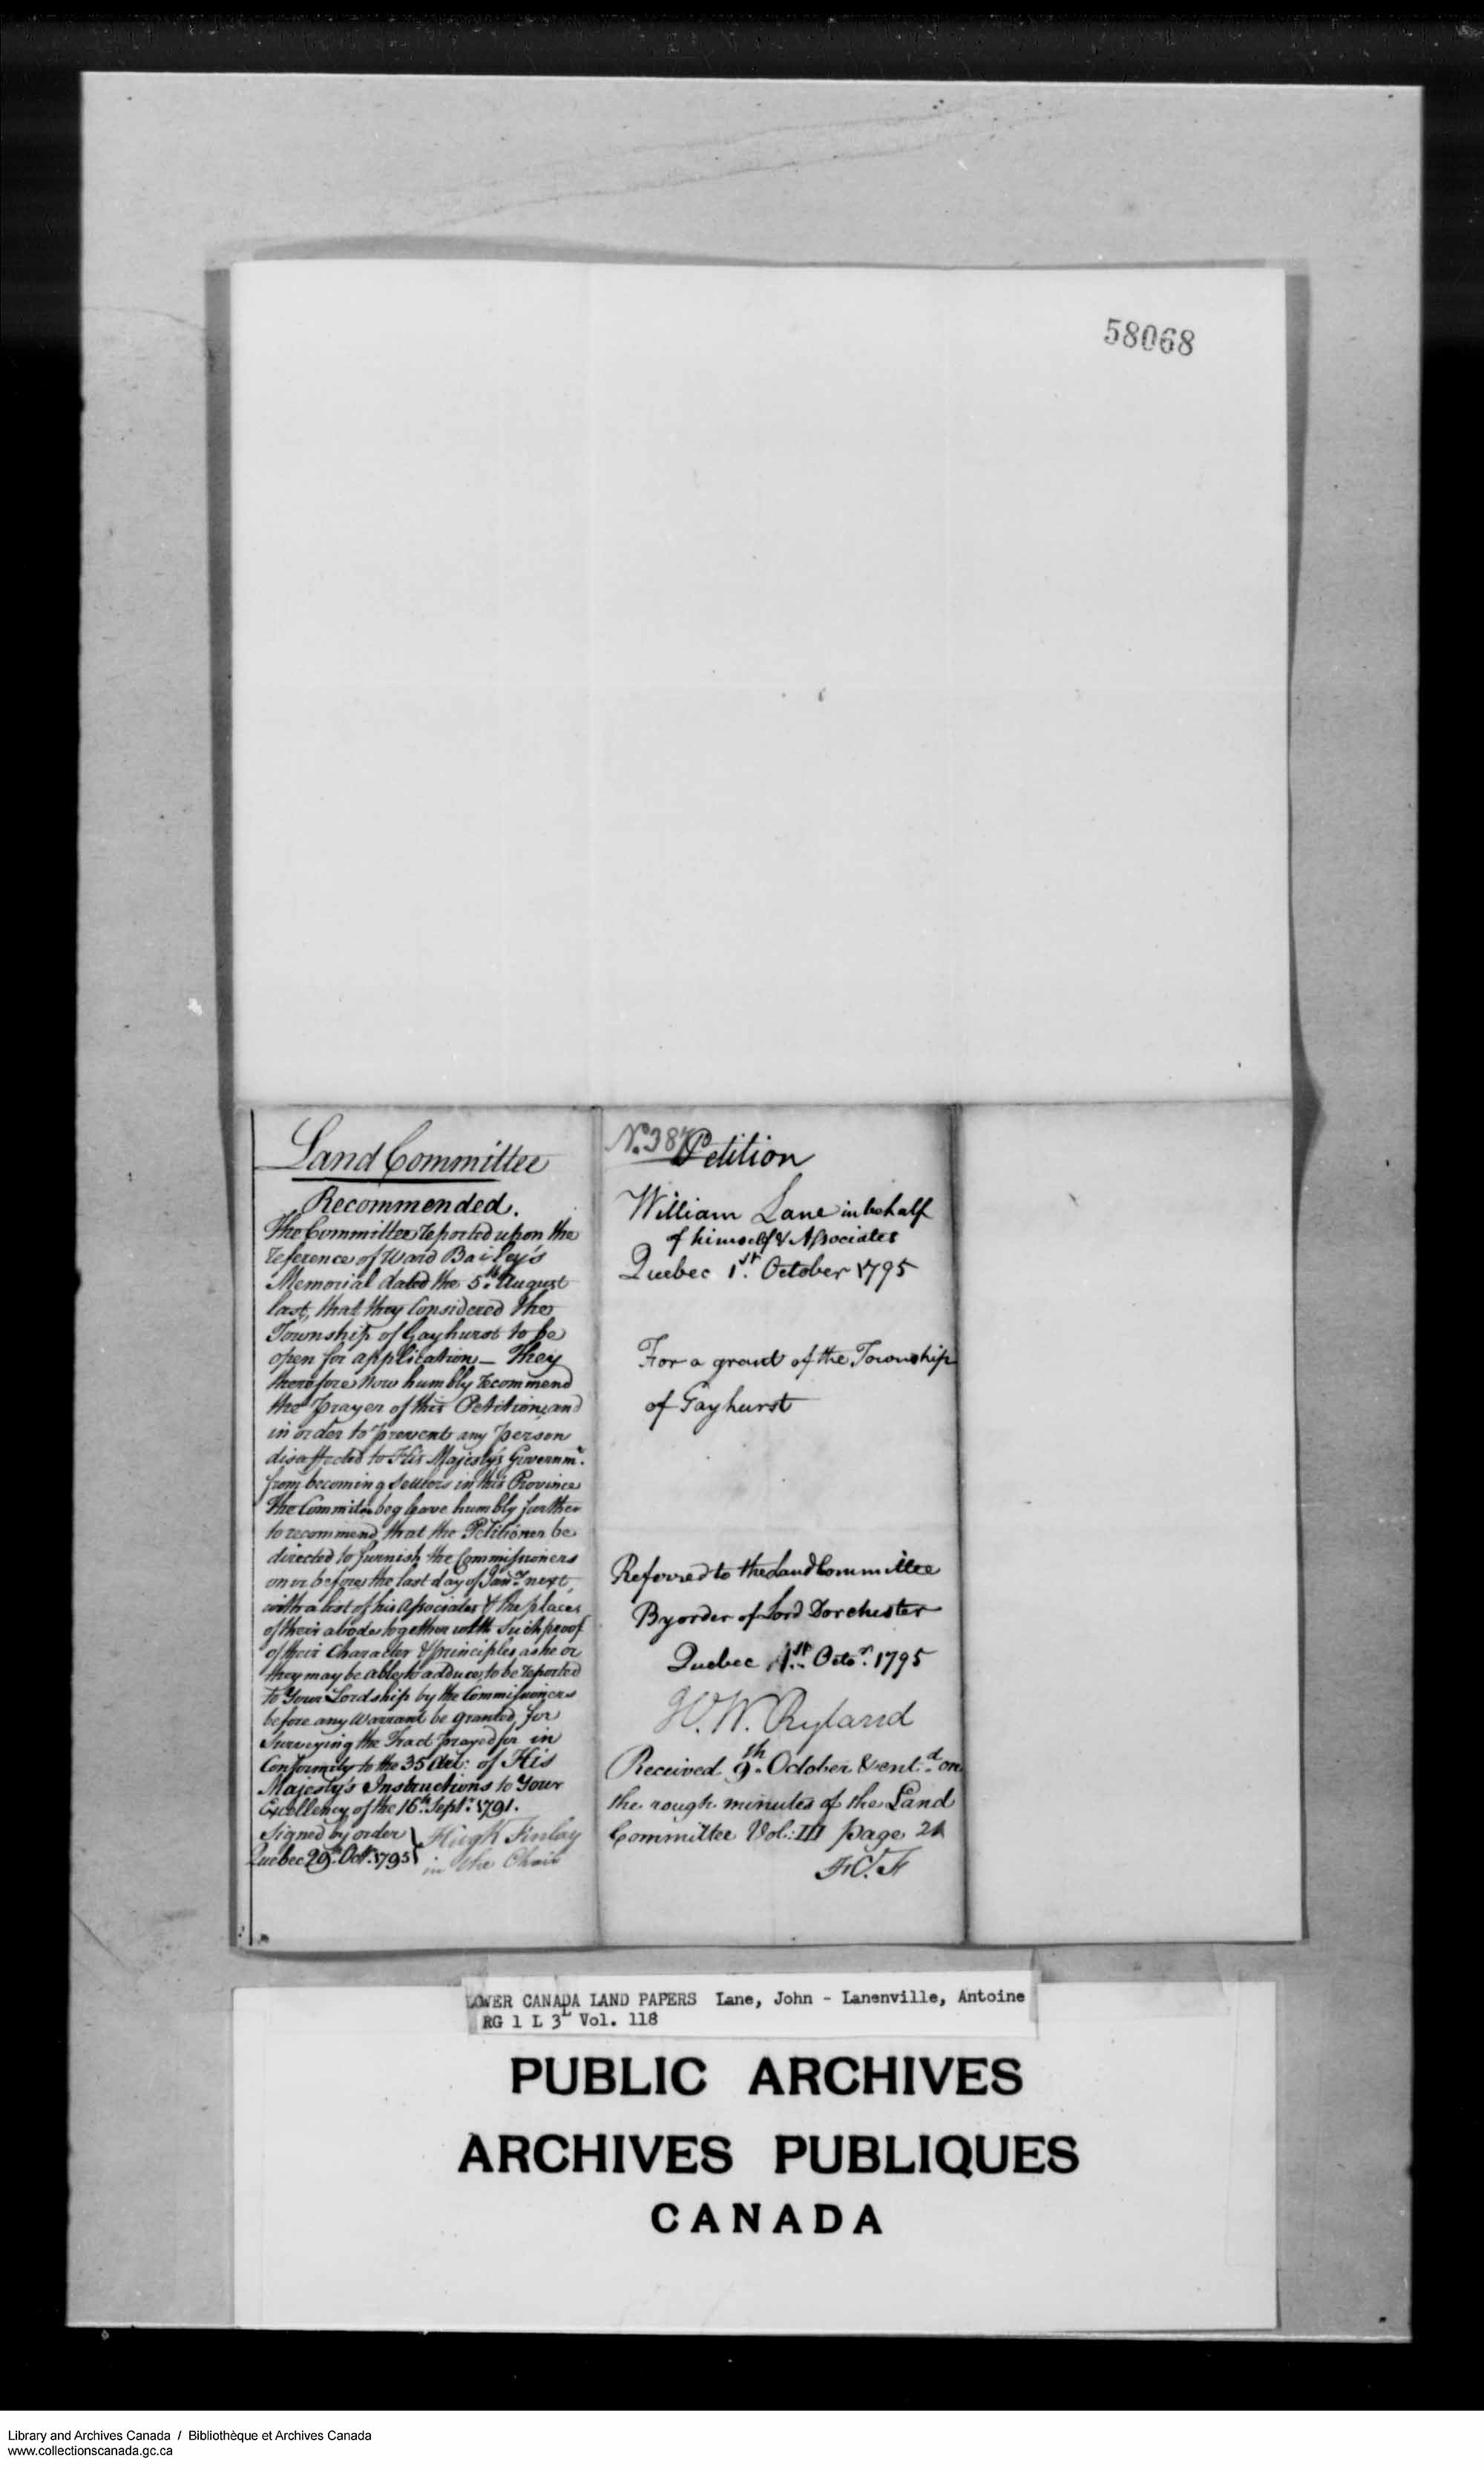 58068
Land Committee
Recommended.
The Committee reported upon the
reference of Ward Bailey's
Memorial dated the 5th August
last, that they Considered the
Township of Gayhurst to be
open for application — They
therefore Now humbly recommend
the prayer of this Petition, and
in order to prevent any person
disaffected to His Majesty's Governmt.
from becoming Settlers in this Province
The Committee beg leave humbly further
to recommend, that the Petitioner be
directed to furnish the Commissioners
on or before the last day of Jany. next,
with a list of his Associates & the places
of their abode together with such proof
of their Character & principles as he or
they may be able to adduce, to be reported
to Your Lordship by the Commissioners
before any Warrant be granted for
Surveying the Tract prayed for in
Conformity to the 35 Art: of His
Majesty's Instructions to Your
Excellency of the 16th Septr. 1791.
Signed by order
Quebec 29th Octr. 1795
Hugh Finlay
in the Chair
No. 38
Petition
William Lane in behalf
of himself & Associates
Quebec 1st. October 1795
For a grant of the Township
of Gayhurst
Referred to the Land Committee
By order of Lord Dorchester
Quebec 1st. Octor. 1795
H. W. Ryland
Received 9th. October & entd. on
the rough minutes of the Land
Committee Vol: III page 21
LOWER CANADA LAND PAPERS Lane, John - Lanenville, Antoine
RG 1 L 3L Vol. 118
PUBLIC ARCHIVES
ARCHIVES PUBLIQUES
CANADA
Library and Archives Canada / Bibliothèque et Archives Canada
www.collectionscanada.gc.ca